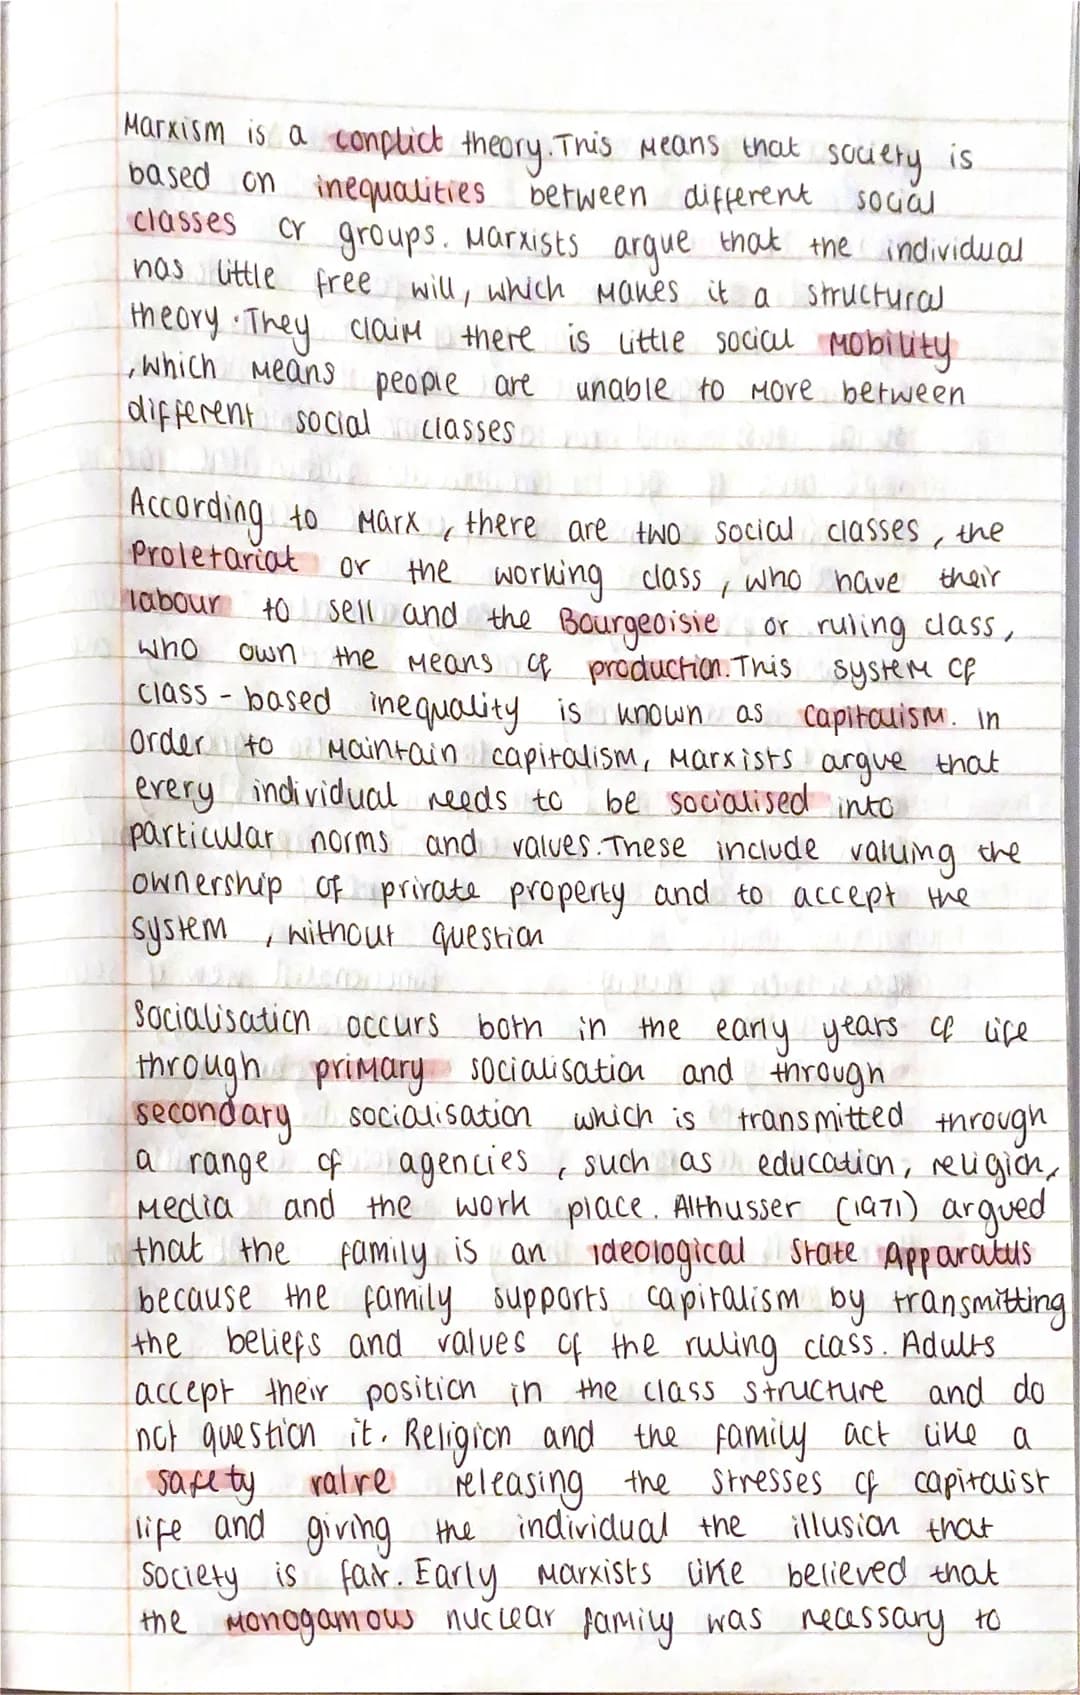 Marxism is a conflict theory. This means that society is
based on inequalities between different social
classes or groups. Marxists argue that the individual
has little free will, which makes it a structural
theory. They claim there is little social mobility
, which means people are unable to move between
different social classes
According to Marx, there are two social classes, the
Proletariat or the working class, who have their
labour to sell and the Bourgeoisie or ruling class,
who own the means of production. This system of
class-based inequality is known as capitalism. In
order to maintain capitalism, Marxists argue that
every individual needs to be socialised into
particular norms and values. These include valuing the
ownership of private property and to accept the
system, without question
Socialisation occurs both in the early years of life
through primary socialisation and through
secondary socialisation which is transmitted through
a range of agencies, such as education, religion,
Media and the work place. Althusser (1971) argued
that the family is an ideological State Apparatus
because the family supports capitalism by transmitting
the beliefs and values of the ruling class. Adults
accept their position in the class structure and do
not question it. Religion and the family act like a
safety valve releasing the stresses of capitalist
life and giving the individual the illusion that
society is fair. Early Marxists like believed that
the monogamous nuclear family was necessary to